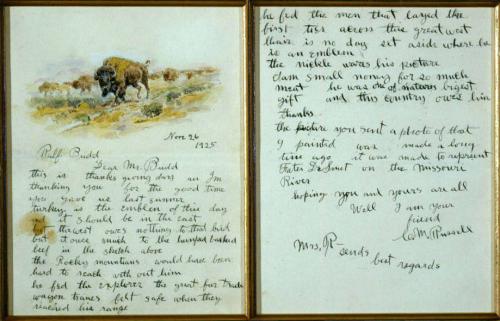 Nov 26
1925
Ralf Budd
Dear Mr. Budd
this is thanks giving day an Im
thanking you for the good time
you gave us last summer
turkey is the emblem of this day
and it should be in the east
but the west owes nothing to that bird
but it owes much to the humped backed
beef in the sketch above
the Rocky mountians would have been
hard to reach with out him
he fed the explorer the great fur trade
wagon tranes felt safe when they
reached his range
he fed the men that layed the
first ties across this great west
thair is no day set aside where he
is an emblem
the nickle wares his picture
dam small money for so much
meat he was one of natures bigest
gift and this country owes him
thanks
the picture you sent a photo of that
I painted was made a long
time ago it was made to represent
Fater De Smet on the Missouri
River
hoping you and yours are all
Well I am your
friend
C M Russell
Mrs. R— sends
best regards